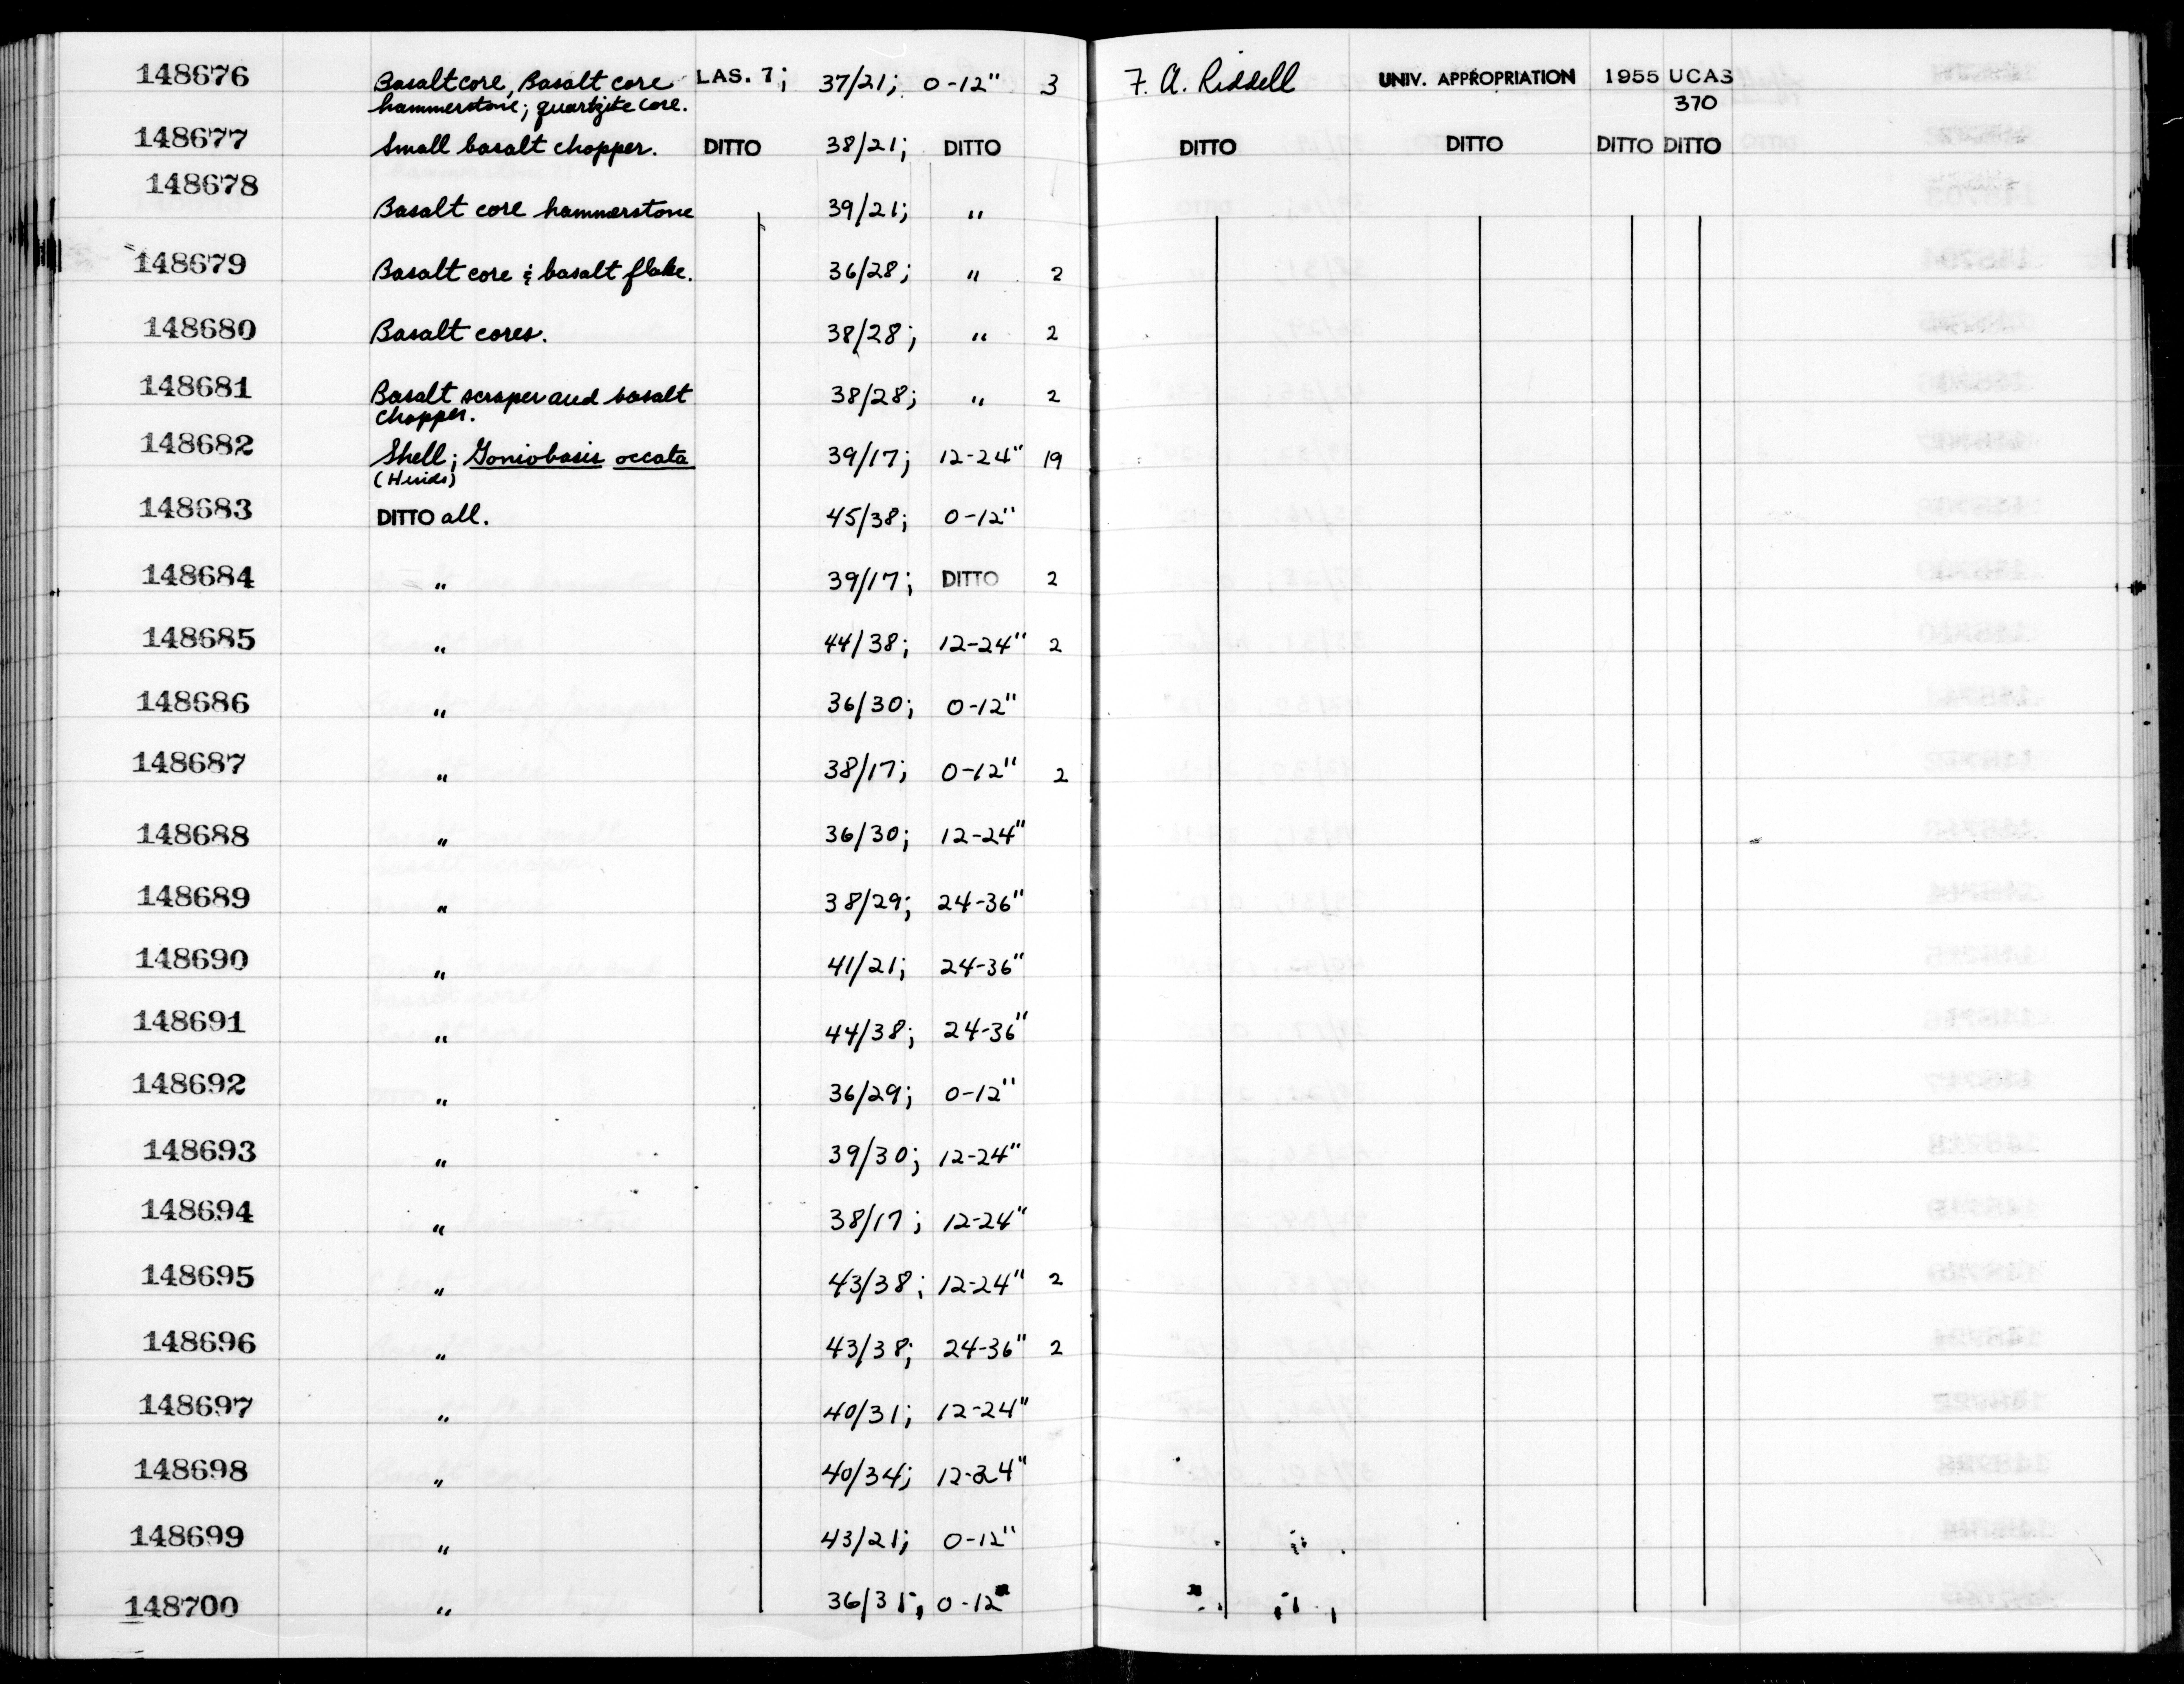 148676 Basalt core, Basalt core LAS. 7; 37/21; 0-12" 3 F. A. Riddell UNIV. APPROPRIATION 1955 UCAS
hammerstone; quartzite core. 370
148677 Small basalt chopper. DITTO 38/21; DITTO DITTO DITTO DITTO DITTO
148678 Basalt core hammerstone 39/21; "
148679 Basalt core & basalt flake. 36/28; " 2
148680 Basalt cores. 38/28; " 2
148681 Basalt scraper and basalt 38/28; " 2
chopper.
148682 Shell; Goniobasis occata 39/17; 12-24" 19
(Hinds)
148683 DITTO all. 45/38; 0-12"
148684 " 39/17; DITTO 2
148685 " 44/38; 12-24" 2
148686 " 36/30; 0-12"
148687 " 38/17; 0-12" 2
148688 " 36/30; 12-24"
148689 " 38/29; 24-36"
148690 " 41/21; 24-36"
148691 " 44/38; 24-36"
148692 " 36/29; 0-12"
148693 " 39/30; 12-24"
148694 " 38/17; 12-24"
148695 " 43/38; 12-24" 2
148696 " 43/38; 24-36" 2
148697 " 40/31; 12-24"
148698 " 40/34; 12-24"
148699 " 43/21; 0-12"
148700 " 36/31; 0-12"